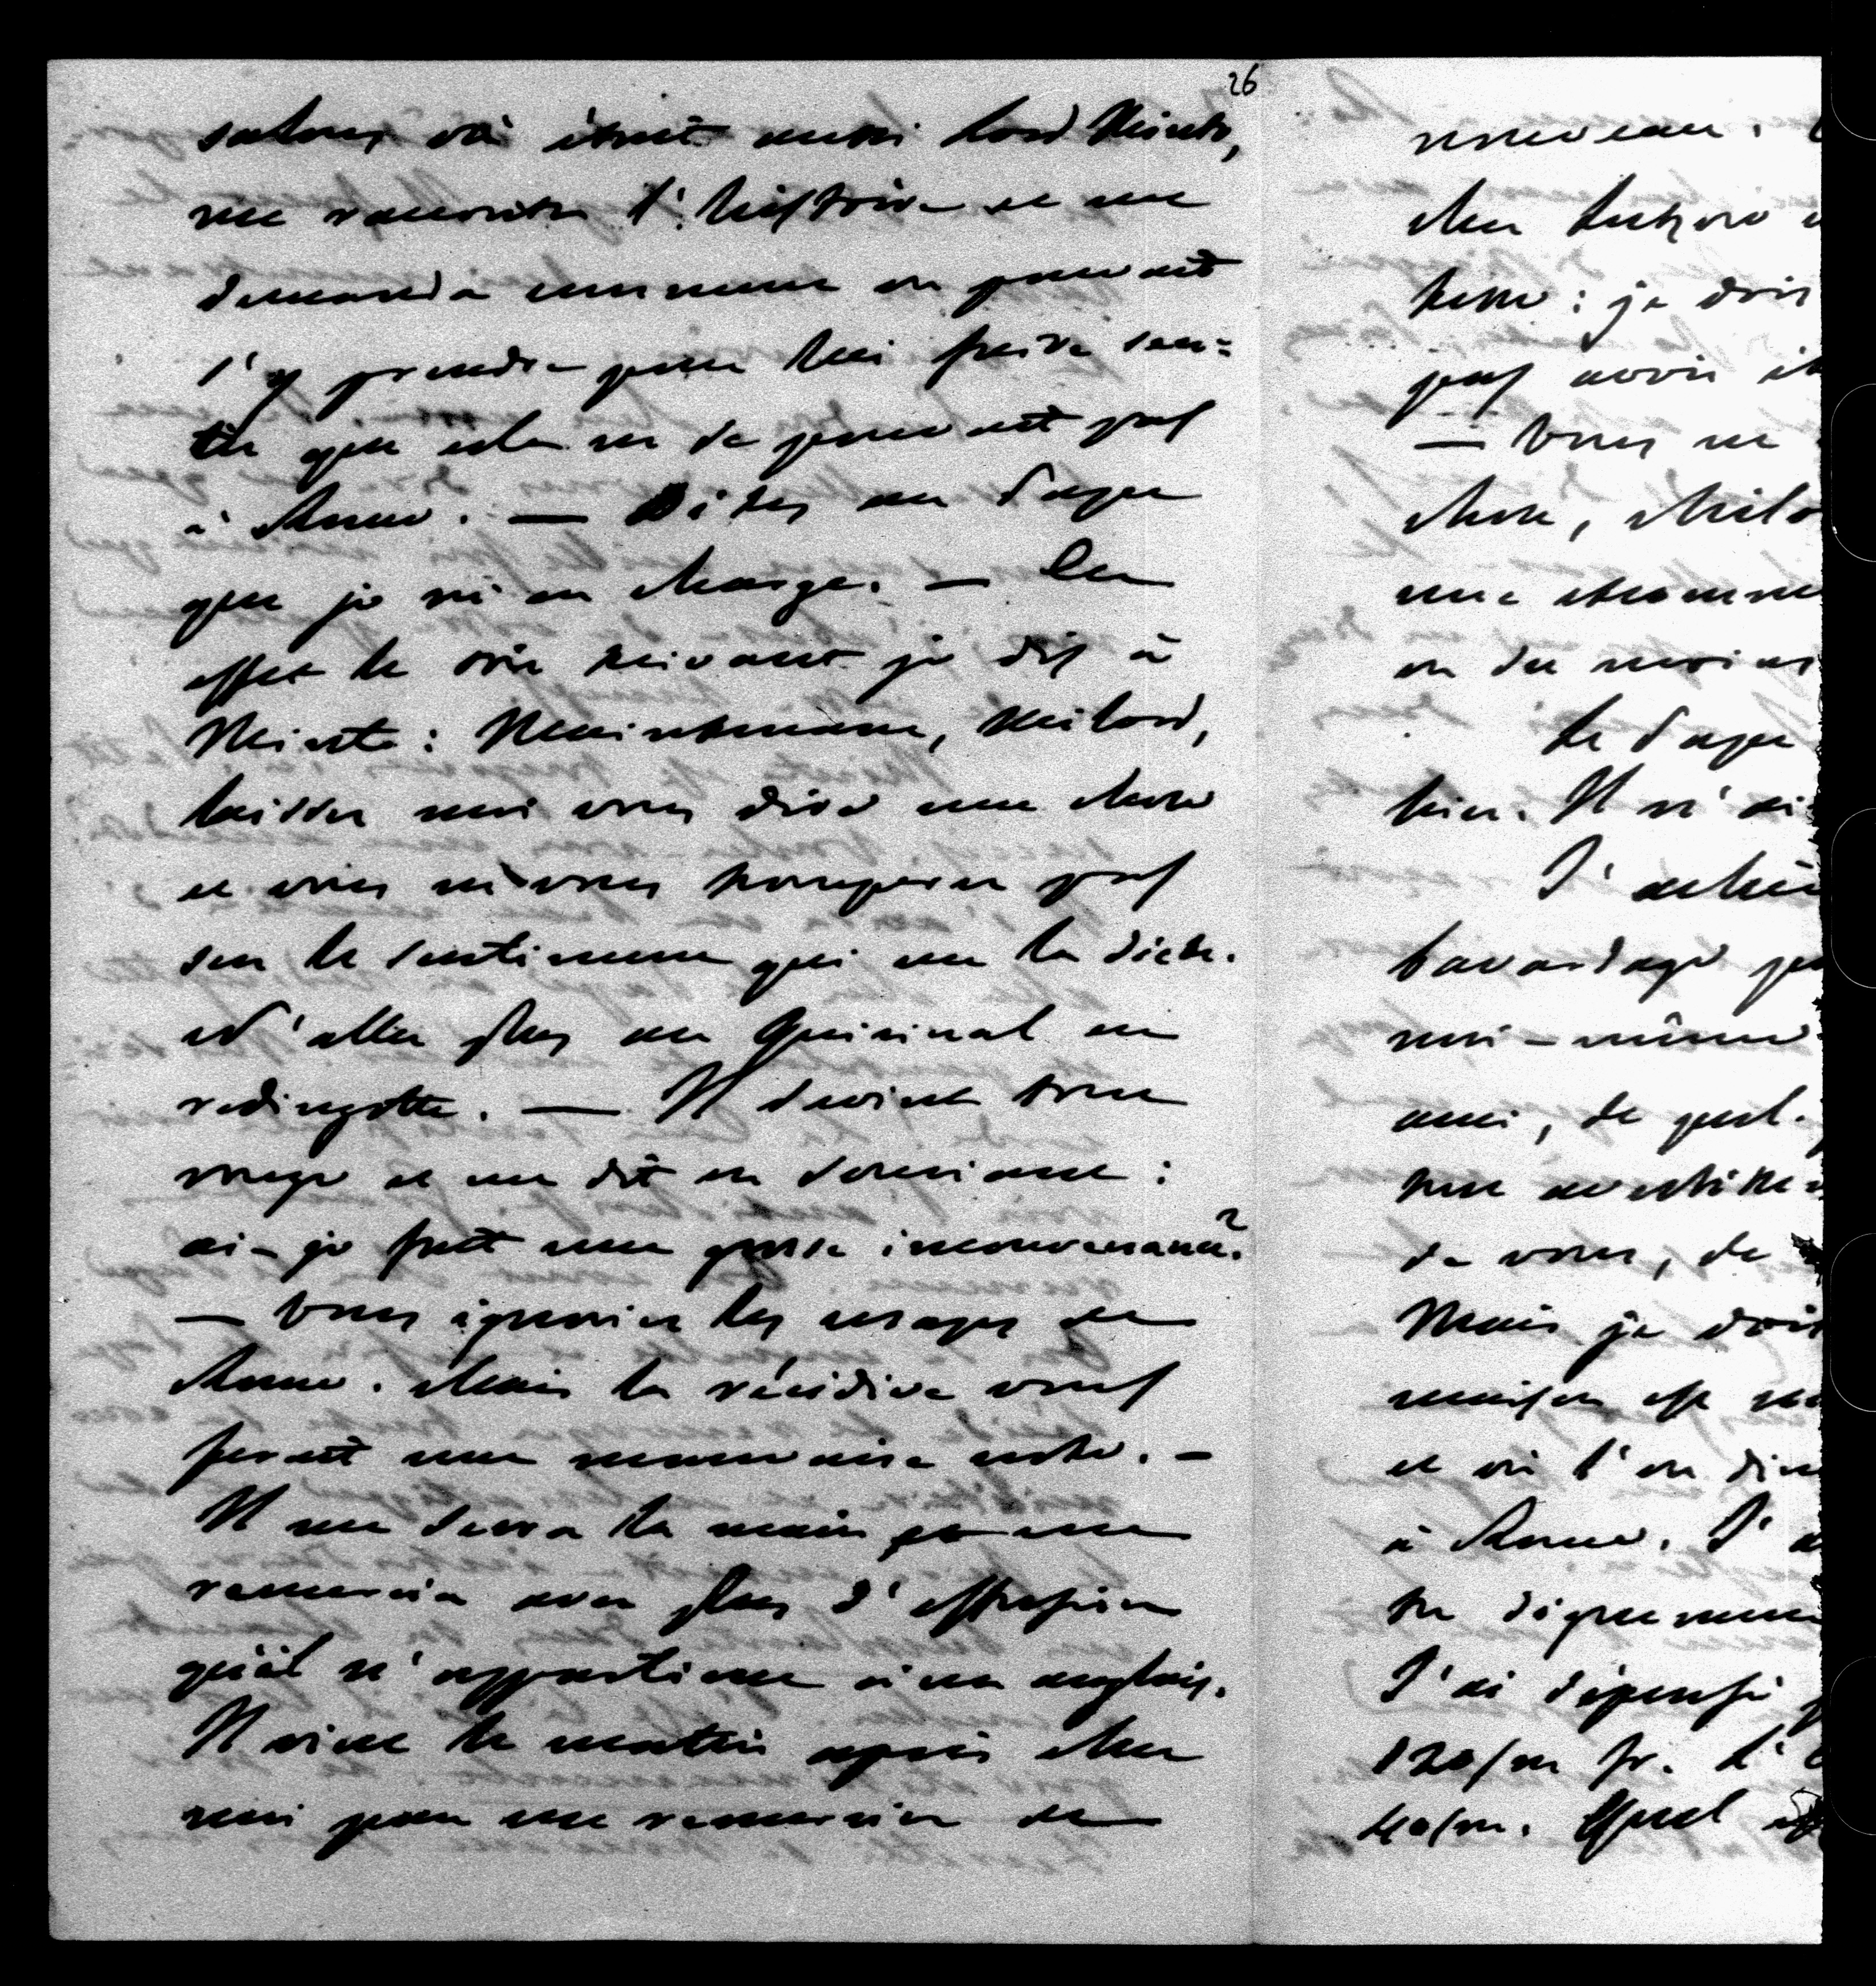 26
salons où était aussi Lord Minto,
me raconta l'histoire et me
demanda comment on pouvait
s'y prendre pour lui faire sen=
tir que cela ne se pouvait pas
à Rome. — Dites au Pape
que je m'en charge. — En
effet le soir suivant je dis à
Minto: Maintenant, Milord,
laissez moi vous dire une chose
et vous ne vous tromperez pas
sur le sentiment qui me la dicte.
N'allez plus au Quirinal en
redingotte. — Il devint tout
rouge et me dit en souriant:
ai-je fait une grosse inconvenance?
— Vous ignoriez les usages de
Rome. Mais la récidive vous
ferait une mauvaise note. —
Il me serra la main et me
remercia avec plus d'effusion
qu'il n'appartient à un anglais.
Il vint le matin après chez
moi pour me remercier de
nouveau.
chez
: je dois
pas avoir
— Vous ne
chose, Milo
une
on du moins
Le Pape
bien. Il m'ai
J'
bavardage
moi-même
ami, de
de vous, de
Mais je dois
maison est
et où l'on dine
à Rome. J'a
J'ai dépensé
120/m fr. L'
40/m. Quel